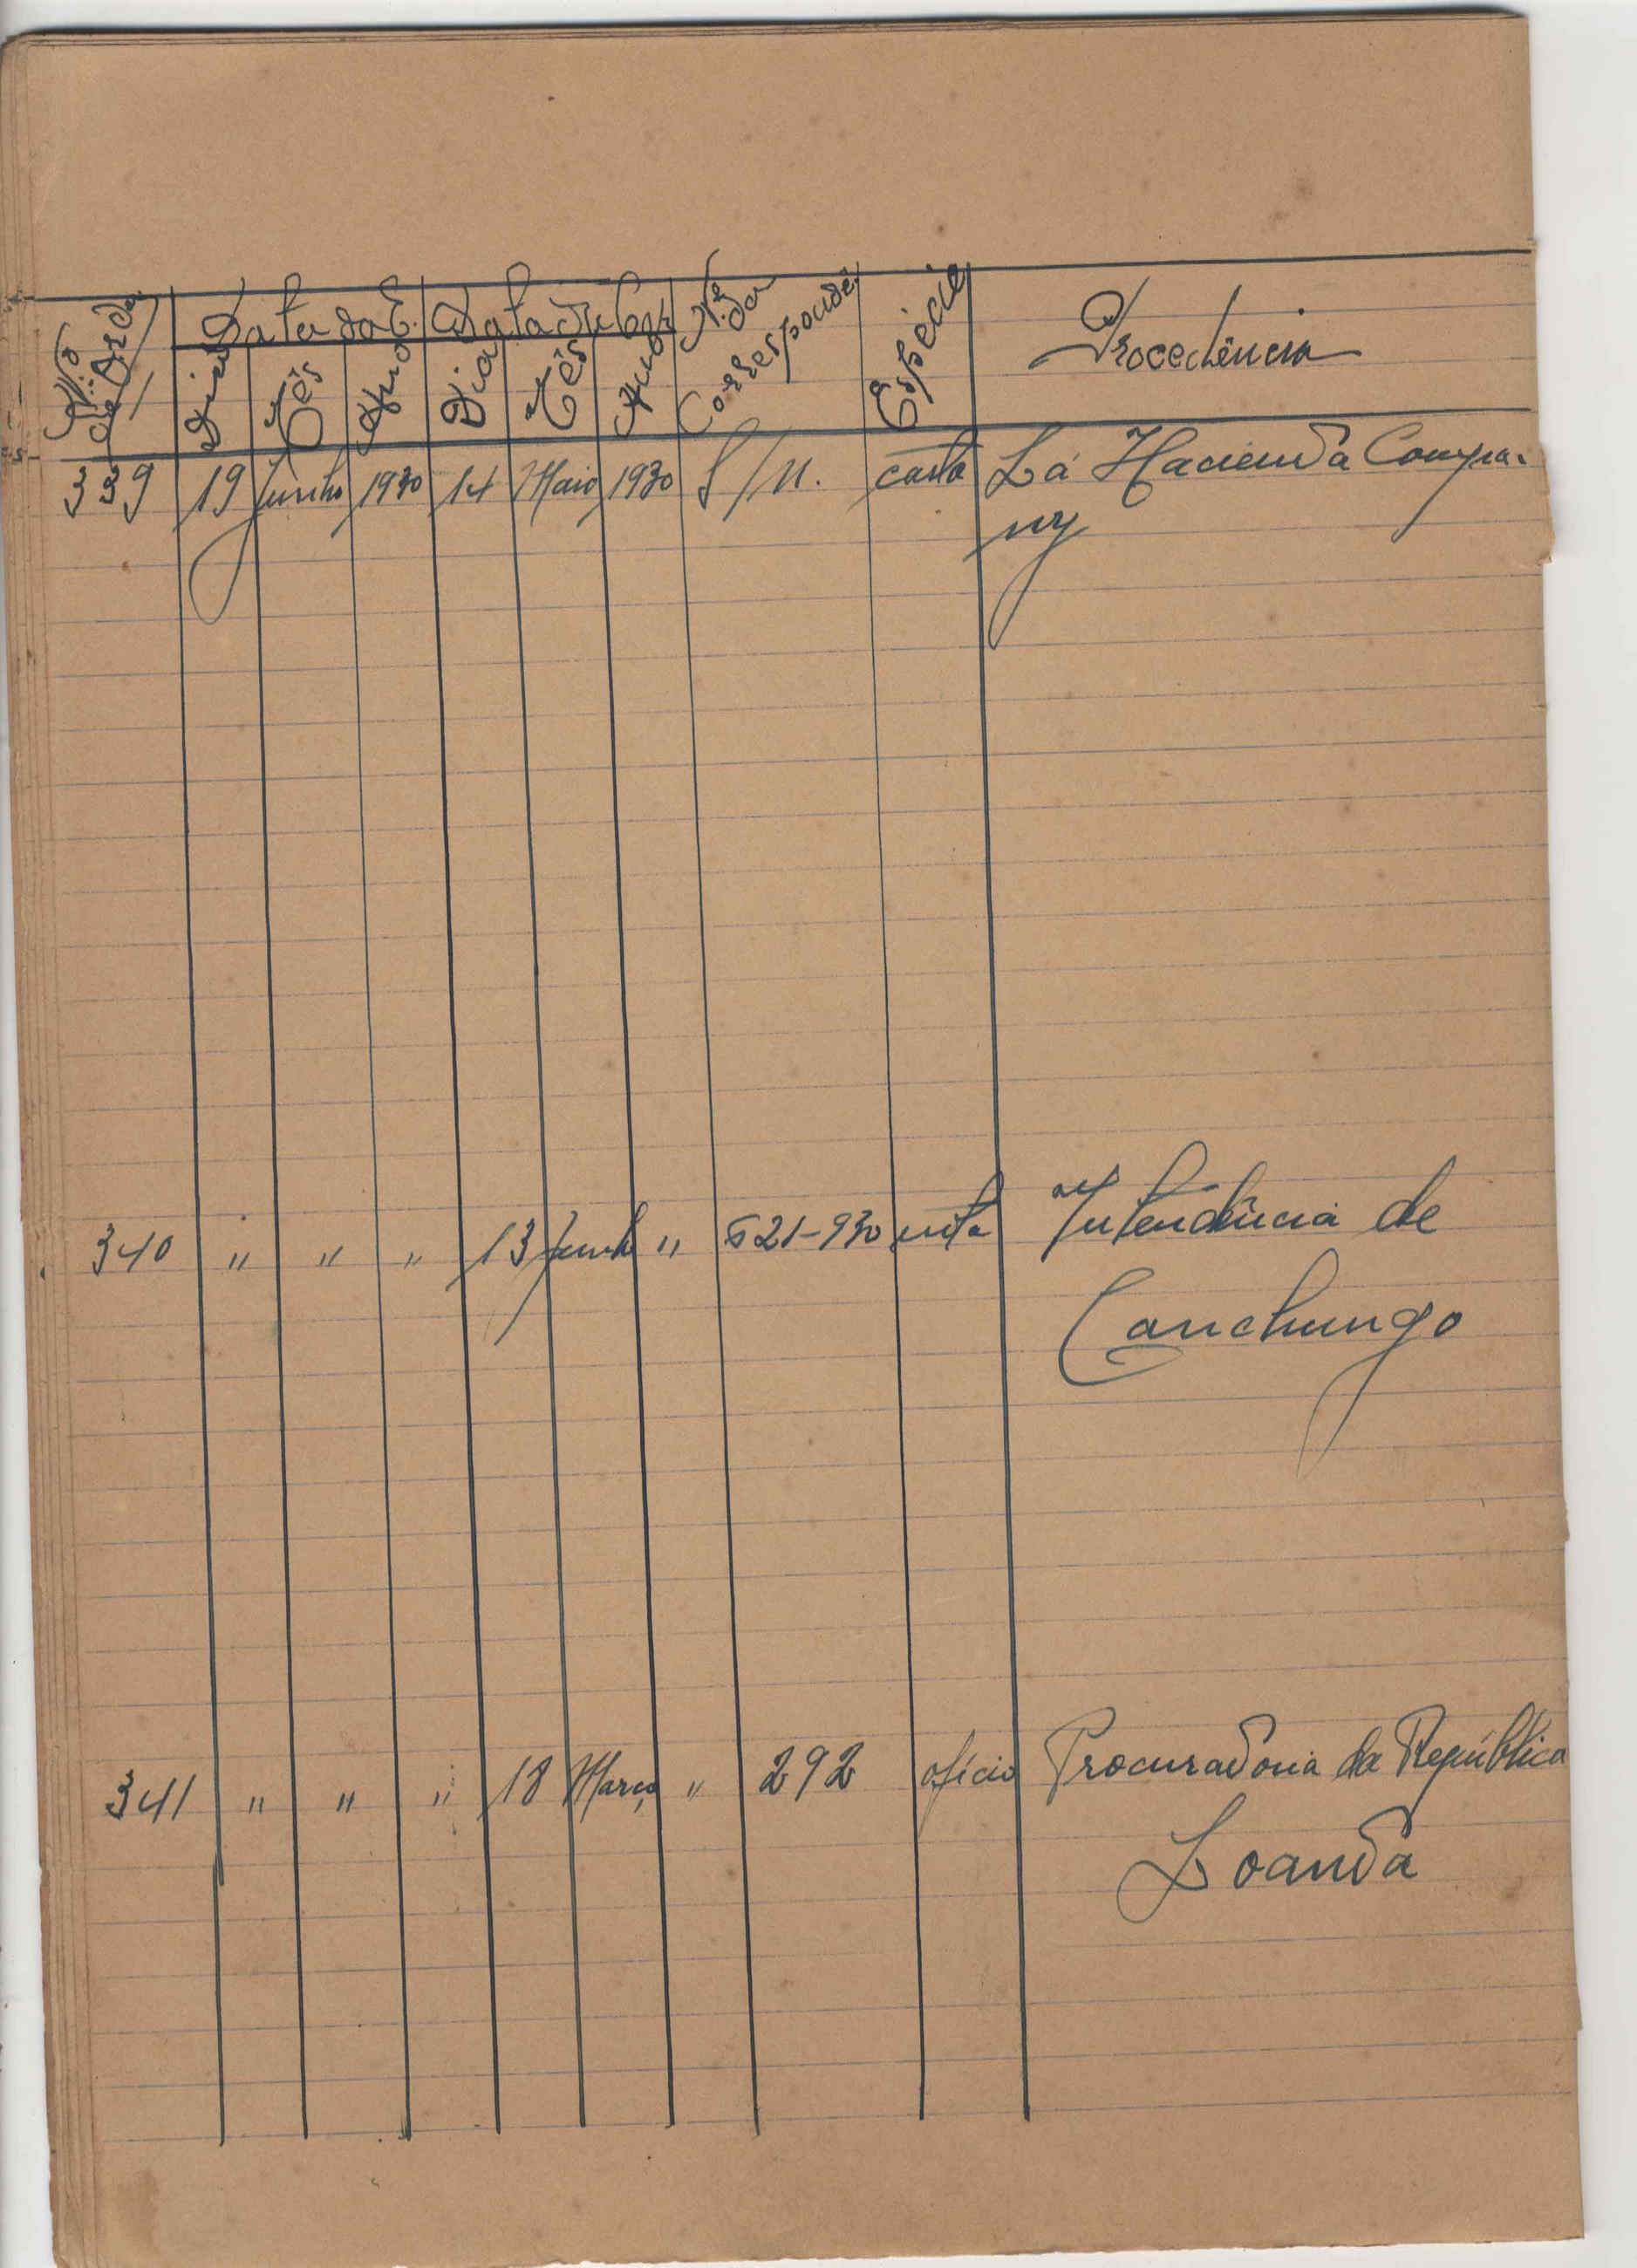 Nº de Ordem Data da E. Data da Corr. Nº da Correspondê. Espécie Procedência
Dia Mês Ano Dia Mês Ano
339 19 Junho 1930 14 Maio 1930 S/N. carta Lá Hacienda Compa-
ny
340 " " " 13 Junho " 521-930 nota Intendência de
Canchungo
341 " " " 18 Março " 292 ofício Procuradoria da República
Loanda